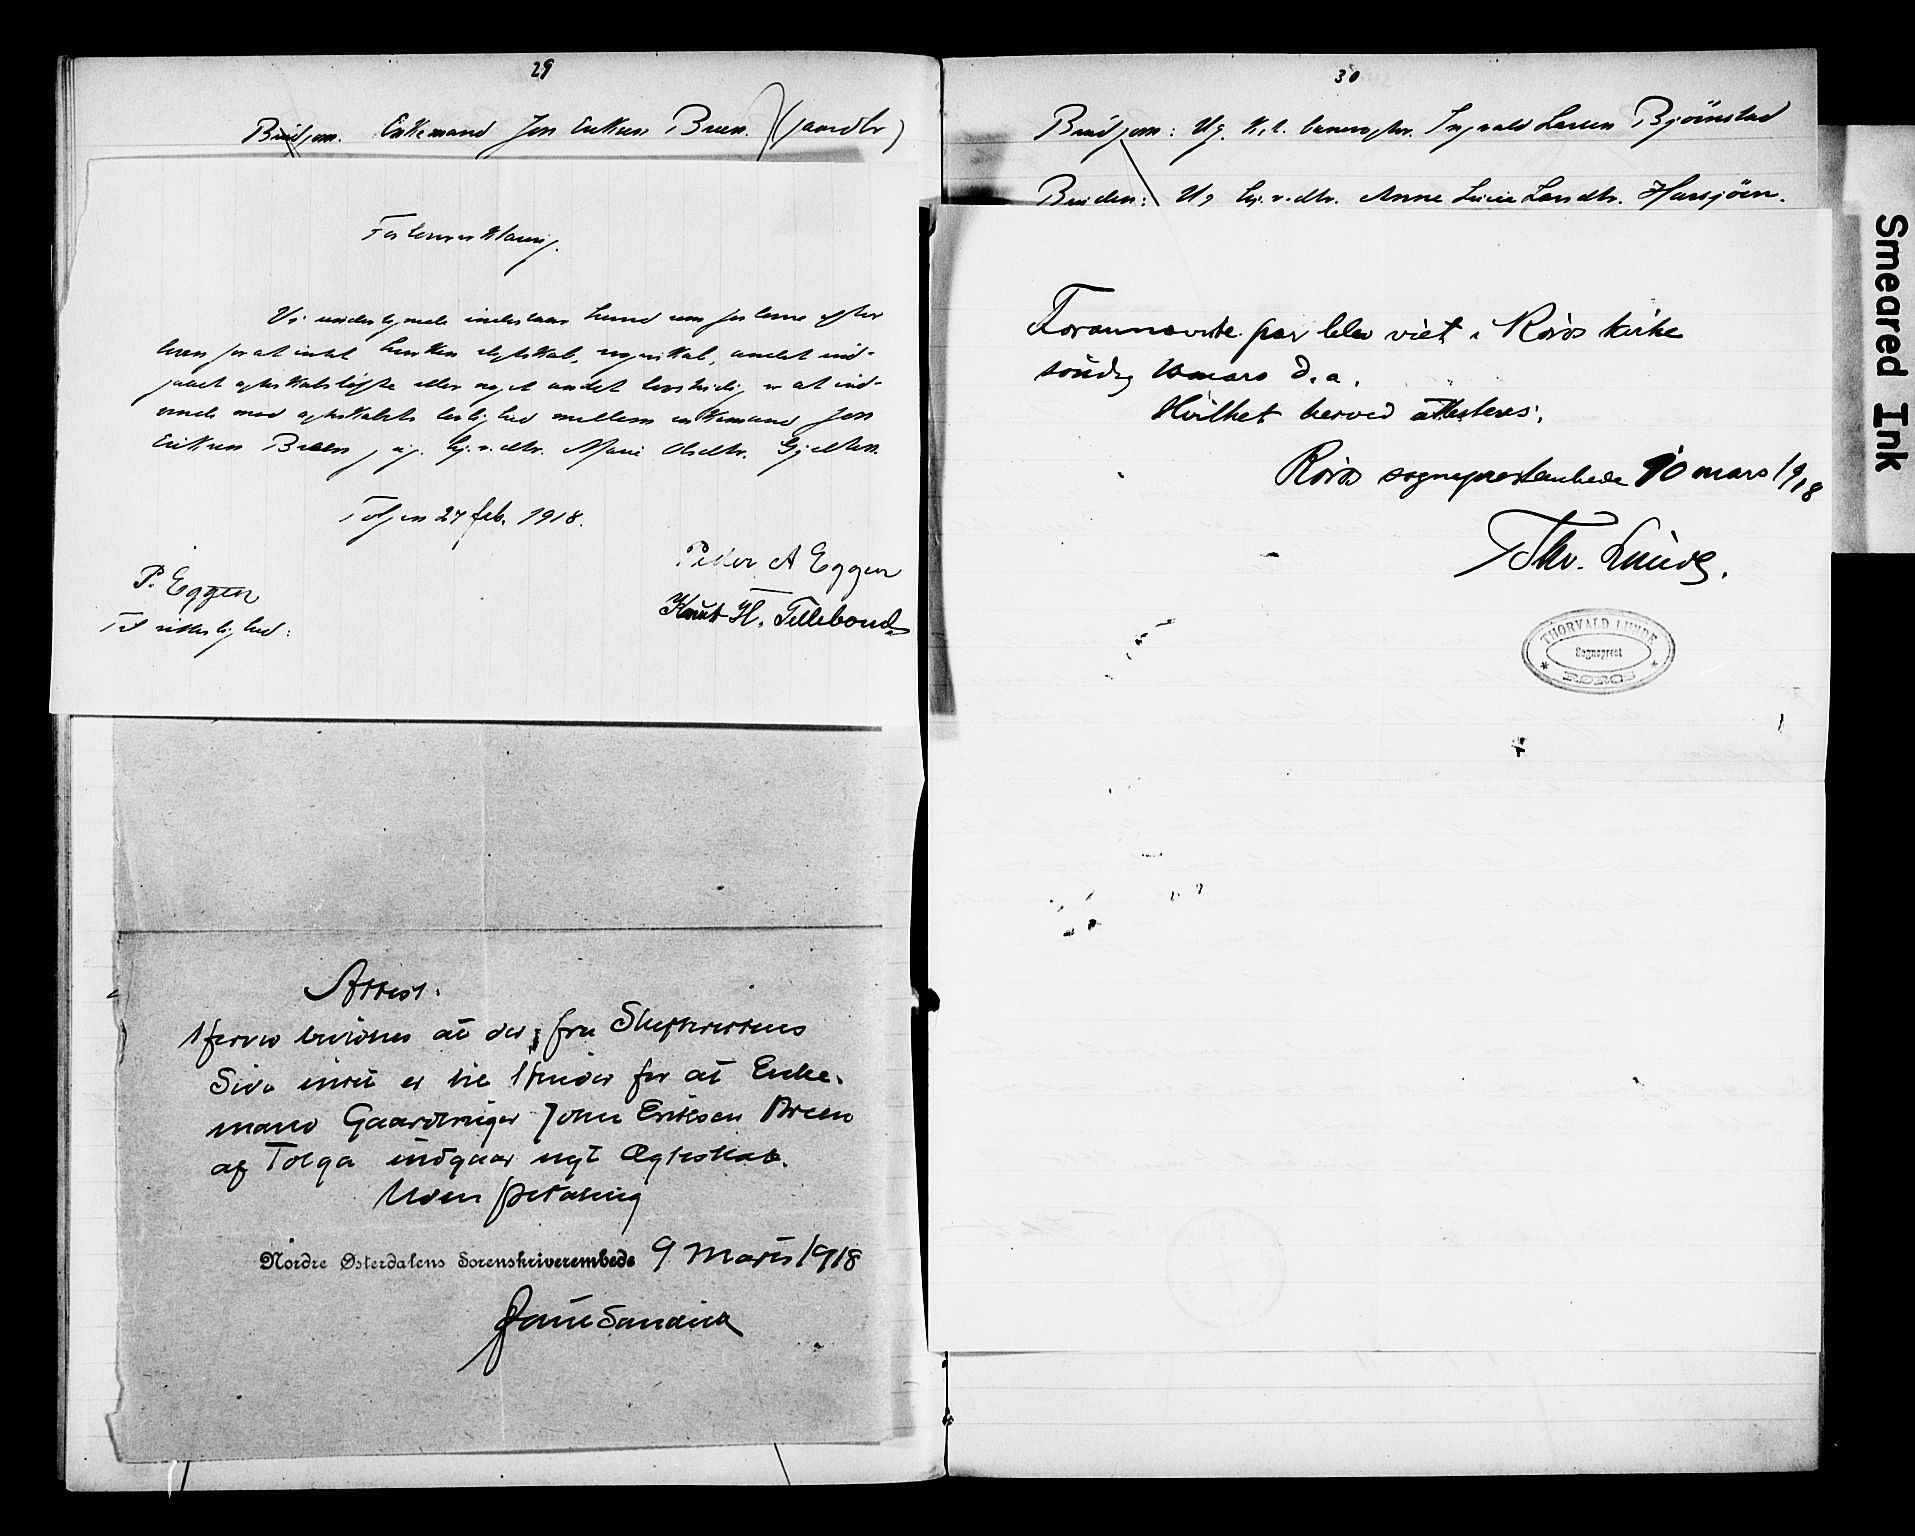 29
Brudgom. Enkemand Jon Eriksen Breen. (gaardbr)
Forloverærklæring.
Vi undertegnede indestaar herved som forlovere efter
loven for at intet hverken slegtskab, svogerskab, andet ind-
gaaet egteskabsløfte eller noget andet lovstridig er at ind-
vende mod egteskabets lovlighed mellem enkemand Jon
Eriksen Breen, ug. bj.v.dtr. Marie Olsdtr. Gjelten.
Tolgen 27 feb. 1918.
Peder A Eggen
P. Eggen
Knut H.
Til vitterlighed:
Attest.
Herved bevidnes at der fra Skifterettens
Side intet er til Hinder for at Enke-
mand Gaardbruger John Eriksen Breen
af Tolga indgaar nyt Ægteskab.
Uden betaling
Nordre Østerdalens Sorenskriverembede 9 Marts 1918
30
Brudgom: Ug. Ingvald Larsen Bjørnstad
Bruden: Ug bj.v.dtr. Anne Larsdtr. Harsjöen.
Forannævnte par blev viet i Røros kirke
søndag 10 mars d.a.
Hvilket herved attesteres.
Røros sogneprestembede 10 mars 1918
Thv. Lunde.
THORVALD LUNDE
Sogneprest
RØROS
Smeared Ink